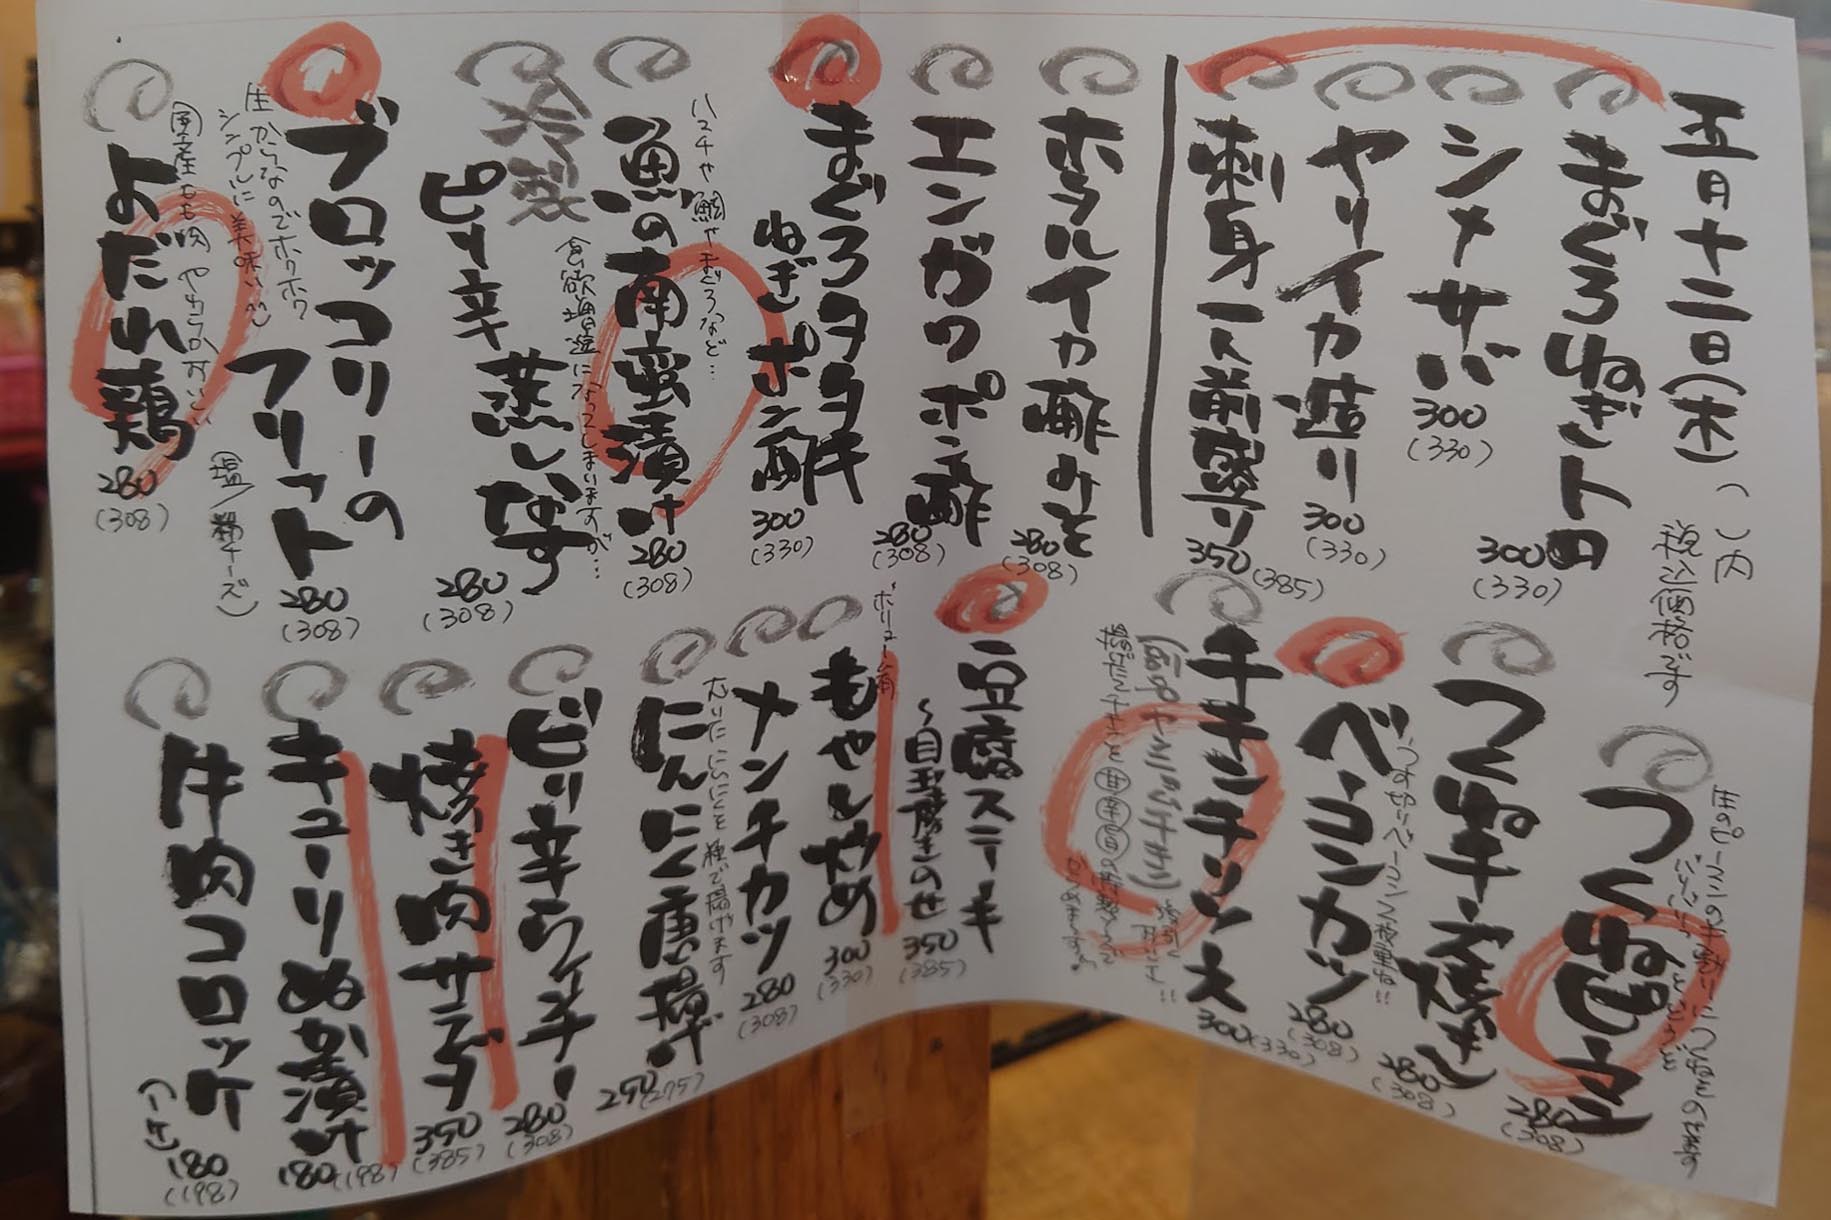 五月十二日(木)
( )内
税込価格です
まぐろねぎトロ
300
(330)
シメサバ
300
(330)
ヤリイカ造り
300
(330)
刺身一人前盛り
350
(385)
ホタルイカ酢みそ
280
(308)
エンガワポン酢
280
(308)
まぐろタタキ
ねぎポン酢
300
(330)
ハマチや鯛やまぐろなど…
魚の南蛮漬け
280
(308)
食欲増進になってしまいますが…
冷製
ピリ辛
蒸しなす
280
(308)
ブロッコリーの
フリット
280
(308)
生からなのでホクホク
シンプルに美味い
(塩/粉チーズ)
国産もも肉
よだれ鶏
280
(308)
生のピーマンの半割りにつくねをのせます
つくねピーマン
280
(308)
つくねチーズ焼き
280
(308)
うす切りベーコン
ベーコンカツ
280
(308)
チキンチリソース
300
(330)
豆腐ステーキ
~目玉焼きのせ
350
(385)
ボリューム有
もやし炒め
300
(330)
メンチカツ
280
(308)
にんにく唐揚げ
250
(275)
ピリ辛ウインナー
280
(308)
焼き肉サラダ
350
(385)
キューリぬか漬け
180
(198)
牛肉コロッケ
(一ケ)
180
(198)